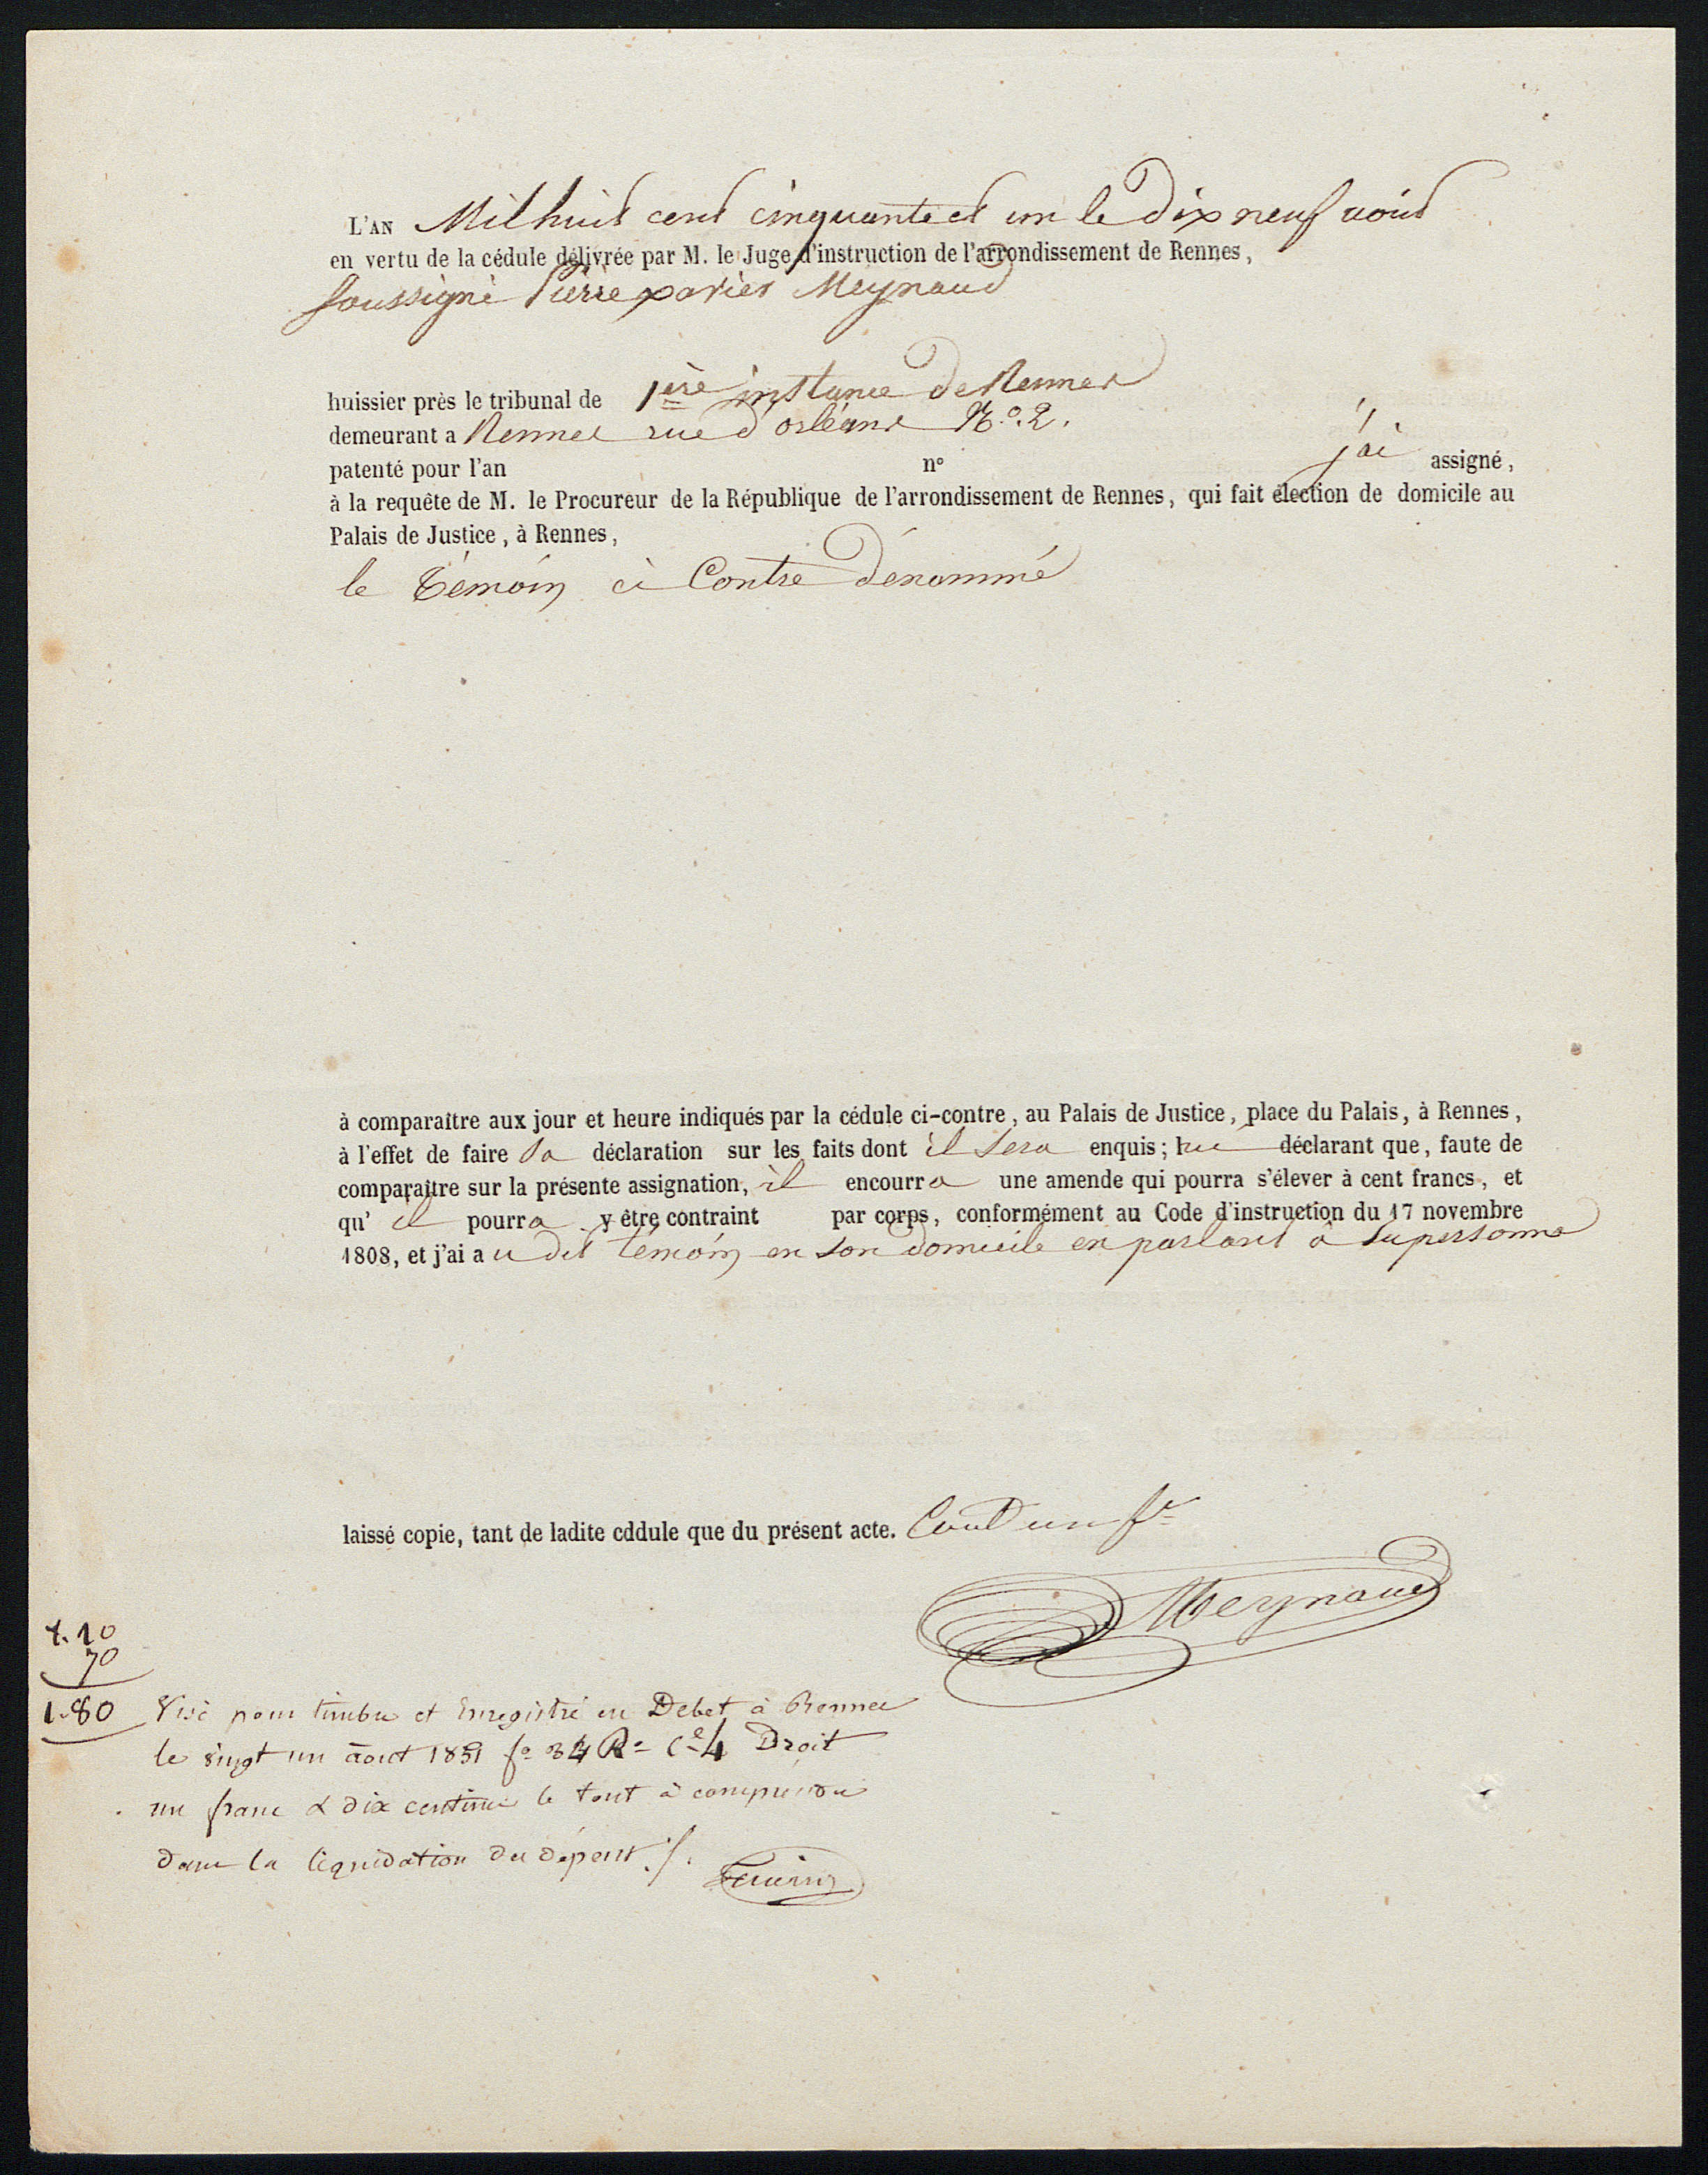 L'AN Mil huit cent cinquante et un le dix neuf aout
en vertu de la cédule délivrée par M. le Juge d'instruction de l'arrondissement de Rennes,
soussigné Pierre xavier Meynaud
huissier près le tribunal de 1ère instance de Rennes
demeurant a Rennes rue d'orléans No. 2.
patenté pour l'an n° j'ai assigné,
à la requête de M. le Procureur de la République de l'arrondissement de Rennes, qui fait élection de domicile au
Palais de Justice, à Rennes,
le témoin ci Contre dénommé
à comparaître aux jour et heure indiqués par la cédule ci-contre, au Palais de Justice, place du Palais, à Rennes,
à l'effet de faire sa déclaration sur les faits dont il sera enquis; lui déclarant que, faute de
comparaître sur la présente assignation, il encourra une amende qui pourra s'élever à cent francs, et
qu' il pourra y être contraint par corps, conformément au Code d'instruction du 17 novembre
1808, et j'ai au dit témoin en son domicile en parlant à sa personne
laissé copie, tant de ladite cddule que du présent acte. Cout un fr
Meynaud
1.10
70
1.80 Visé pour timbre et Enregistré en Debet à Rennes
le vingt un aout 1851 fo 34 Ro Ce 4 Droit
un franc & dix centimes le tout à comprendre
dans la liquidation des dépens ./.